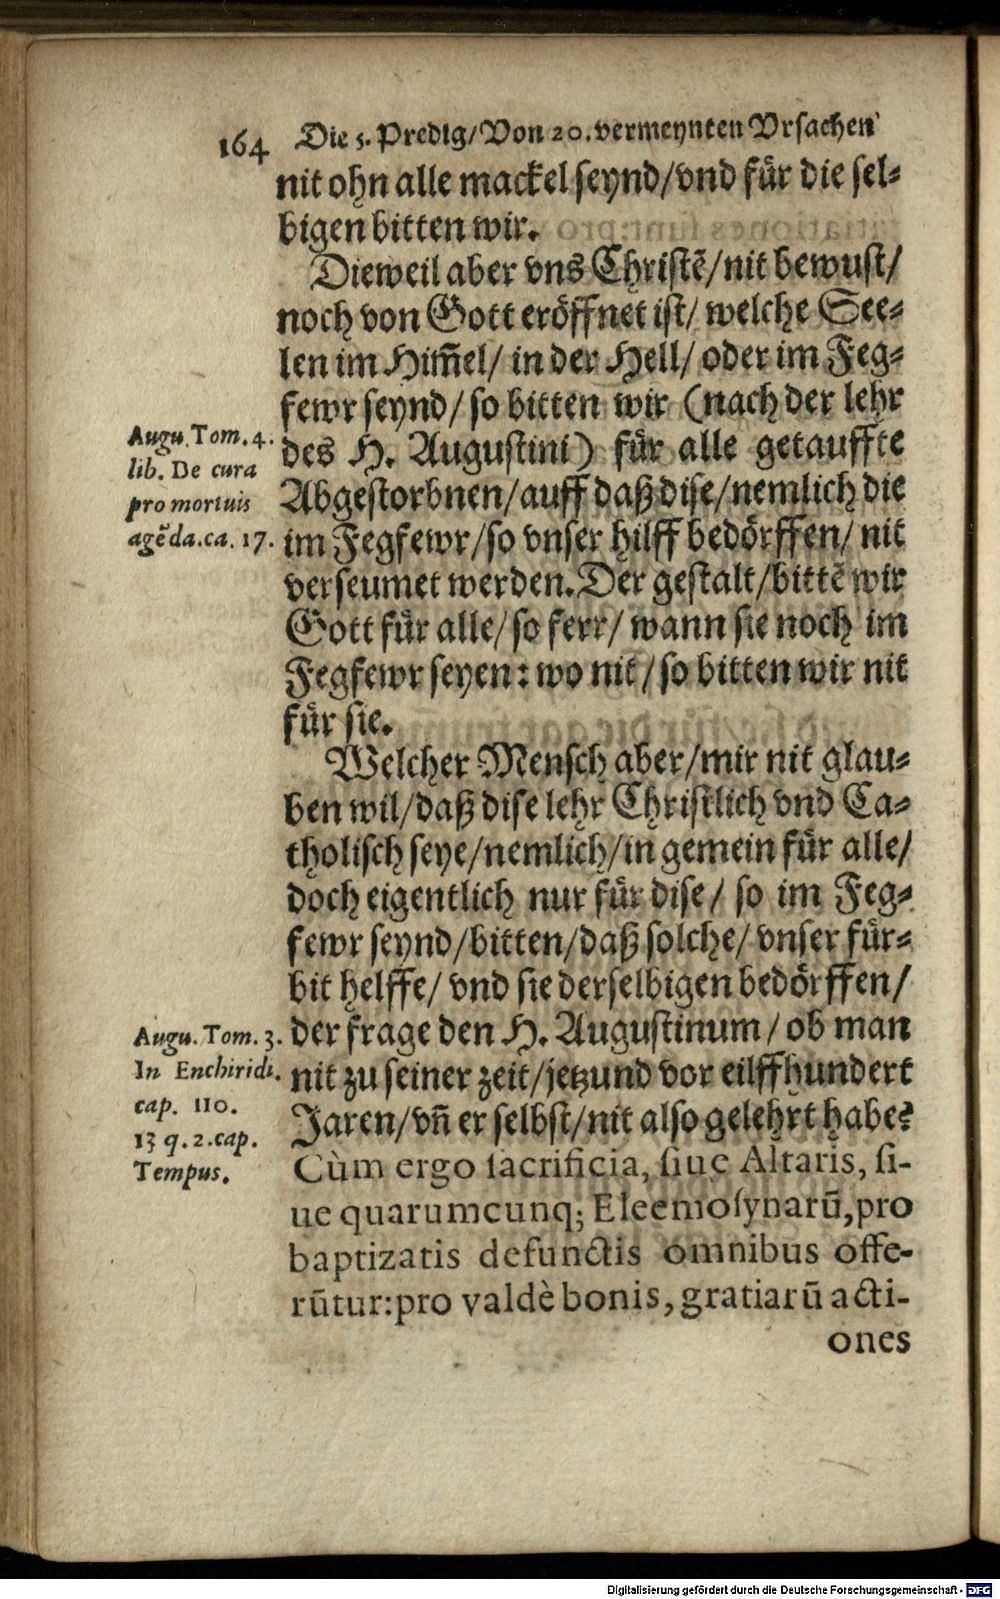 164 Die 5. Predig/Von 20. vermeynten Vrsachen
nit ohn alle mackel seynd/vnd fuͤr die sel⸗
bigen bitten wir.
Dieweil aber vns Christẽ/nit bewust/
noch von Gott eroͤffnet ist/ welche See⸗
len im Him̃el/ in der Hell/ oder im Feg⸗
fewr seynd/ so bitten wir (nach der lehr
des H. Augustini) fuͤr alle getauffte
Abgestorbnen/auff daß dise/nemlich die
im Fegfewr/so vnser hilff bedoͤrffen/ nit
verseumet werden. Der gestalt/bittẽ wir
Gott fuͤr alle/ so ferr/ wann sie noch im
Fegfewr seyen: wo nit/ so bitten wir nit
fuͤr sie.
Augu. Tom. 4.
lib. De cura
pro mortuis
agẽda. ca. 17.
Welcher Mensch aber/mir nit glau⸗
ben wil/daß dise lehr Christlich vnd Ca⸗
tholisch seye/nemlich/in gemein fuͤr alle/
doch eigentlich nur fuͤr dise/ so im Feg⸗
fewr seynd/bitten/daß solche/ vnser fuͤr⸗
bit helffe/ vnd sie derselbigen bedoͤrffen/
der frage den H. Augustinum/ ob man
nit zu seiner zeit/jetzund vor eilffhundert
Jaren/vñ er selbst/nit also gelehrt habe?
Cùm ergo sacrificia, siue Altaris, si-
ue quarumcunq; Eleemosynarũ, pro
baptizatis defunctis omnibus offe-
rũtur: pro valdè bonis, gratiarũ acti-
ones
Augu. Tom. 3.
In Enchiridi.
cap. 110.
13 q. 2. cap.
Tempus.
Digitalisierung gefördert durch die Deutsche Forschungsgemeinschaft - DFG